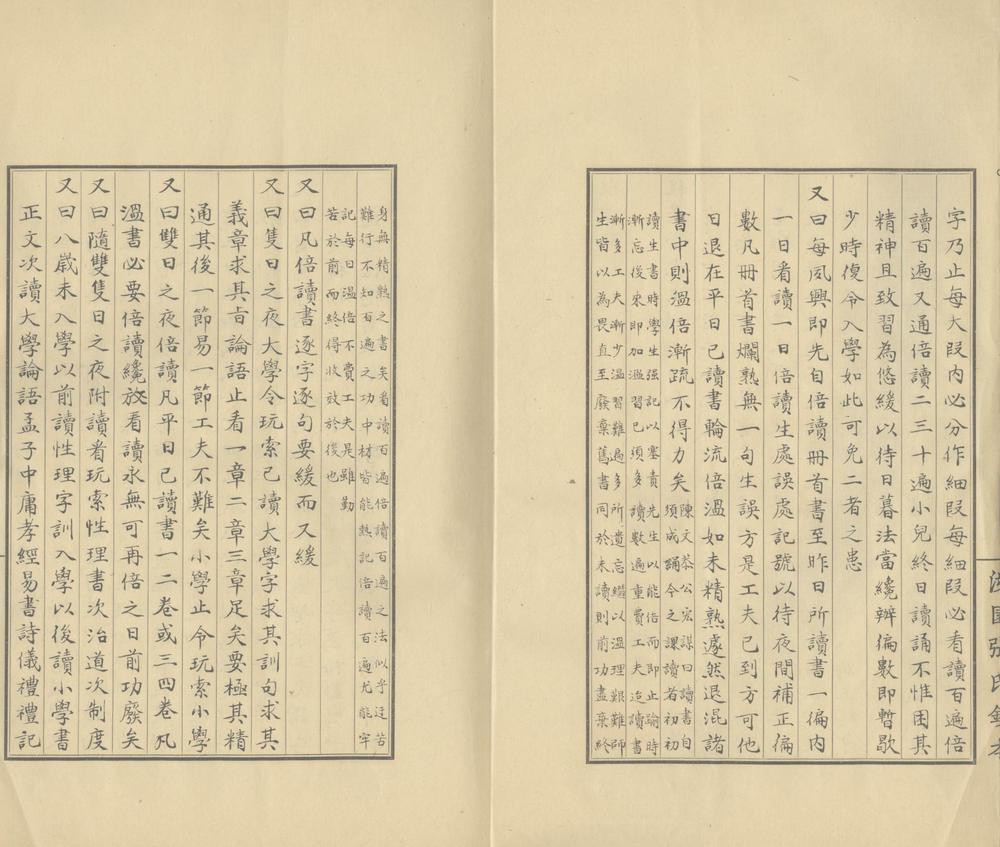 字乃止每大段内必分作細段每細段必看讀百遍倍
讀百遍又通倍讀二三十遍小兒終日讀誦不惟困其
精神且致習為悠緩以待日暮法當纔辨徧數即暫歇
少時復令入學如此可免二者之患
又曰每夙興即先自倍讀冊首書至昨日所讀書一徧内
一日看讀一日倍讀生處誤處記號以待夜間補正徧
數凡冊首書爛熟無一句生誤方是工夫已到方可他
日退在平日已讀書輪流倍溫如未精熟遽然退混諸
書中則溫倍漸疏不得力矣
陳文恭公宏謀曰讀書自
須成誦今之課讀者初初
讀生書時學生强記以塞責先生以能倍而即止踰時
漸忘後來即加溫習已須多讀數遍重費工夫迨讀書
漸多工夫漸少溫習難遍多所遺忘繼以溫理艱難師
生皆以為畏直至廢棄舊書同於未讀則前功盡棄終
身無精熟之書矣看讀百遍倍讀百遍之法似乎迂苦
難行不知百遍之功中材皆能熟記倍讀百遍尤能牢
記每日溫倍不費工夫是雖勤
苦於前而終得收效於後也
又曰凡倍讀書逐字逐句要緩而又緩
又曰隻日之夜大學令玩索已讀大學字求其訓句求其
義章求其旨論語止看一章二章三章足矣要極其精
通其後一節易一節工夫不難矣小學止令玩索小學
又曰雙日之夜倍讀凡平日已讀書一二卷或三四卷凡
溫書必要倍讀纔放看讀永無可再倍之日前功廢矣
又曰隨雙隻日之夜附讀看玩索性理書次治道次制度
又曰八歲未入學以前讀性理字訓入學以後讀小學書
正文次讀大學論語孟子中庸孝經易書詩儀禮禮記